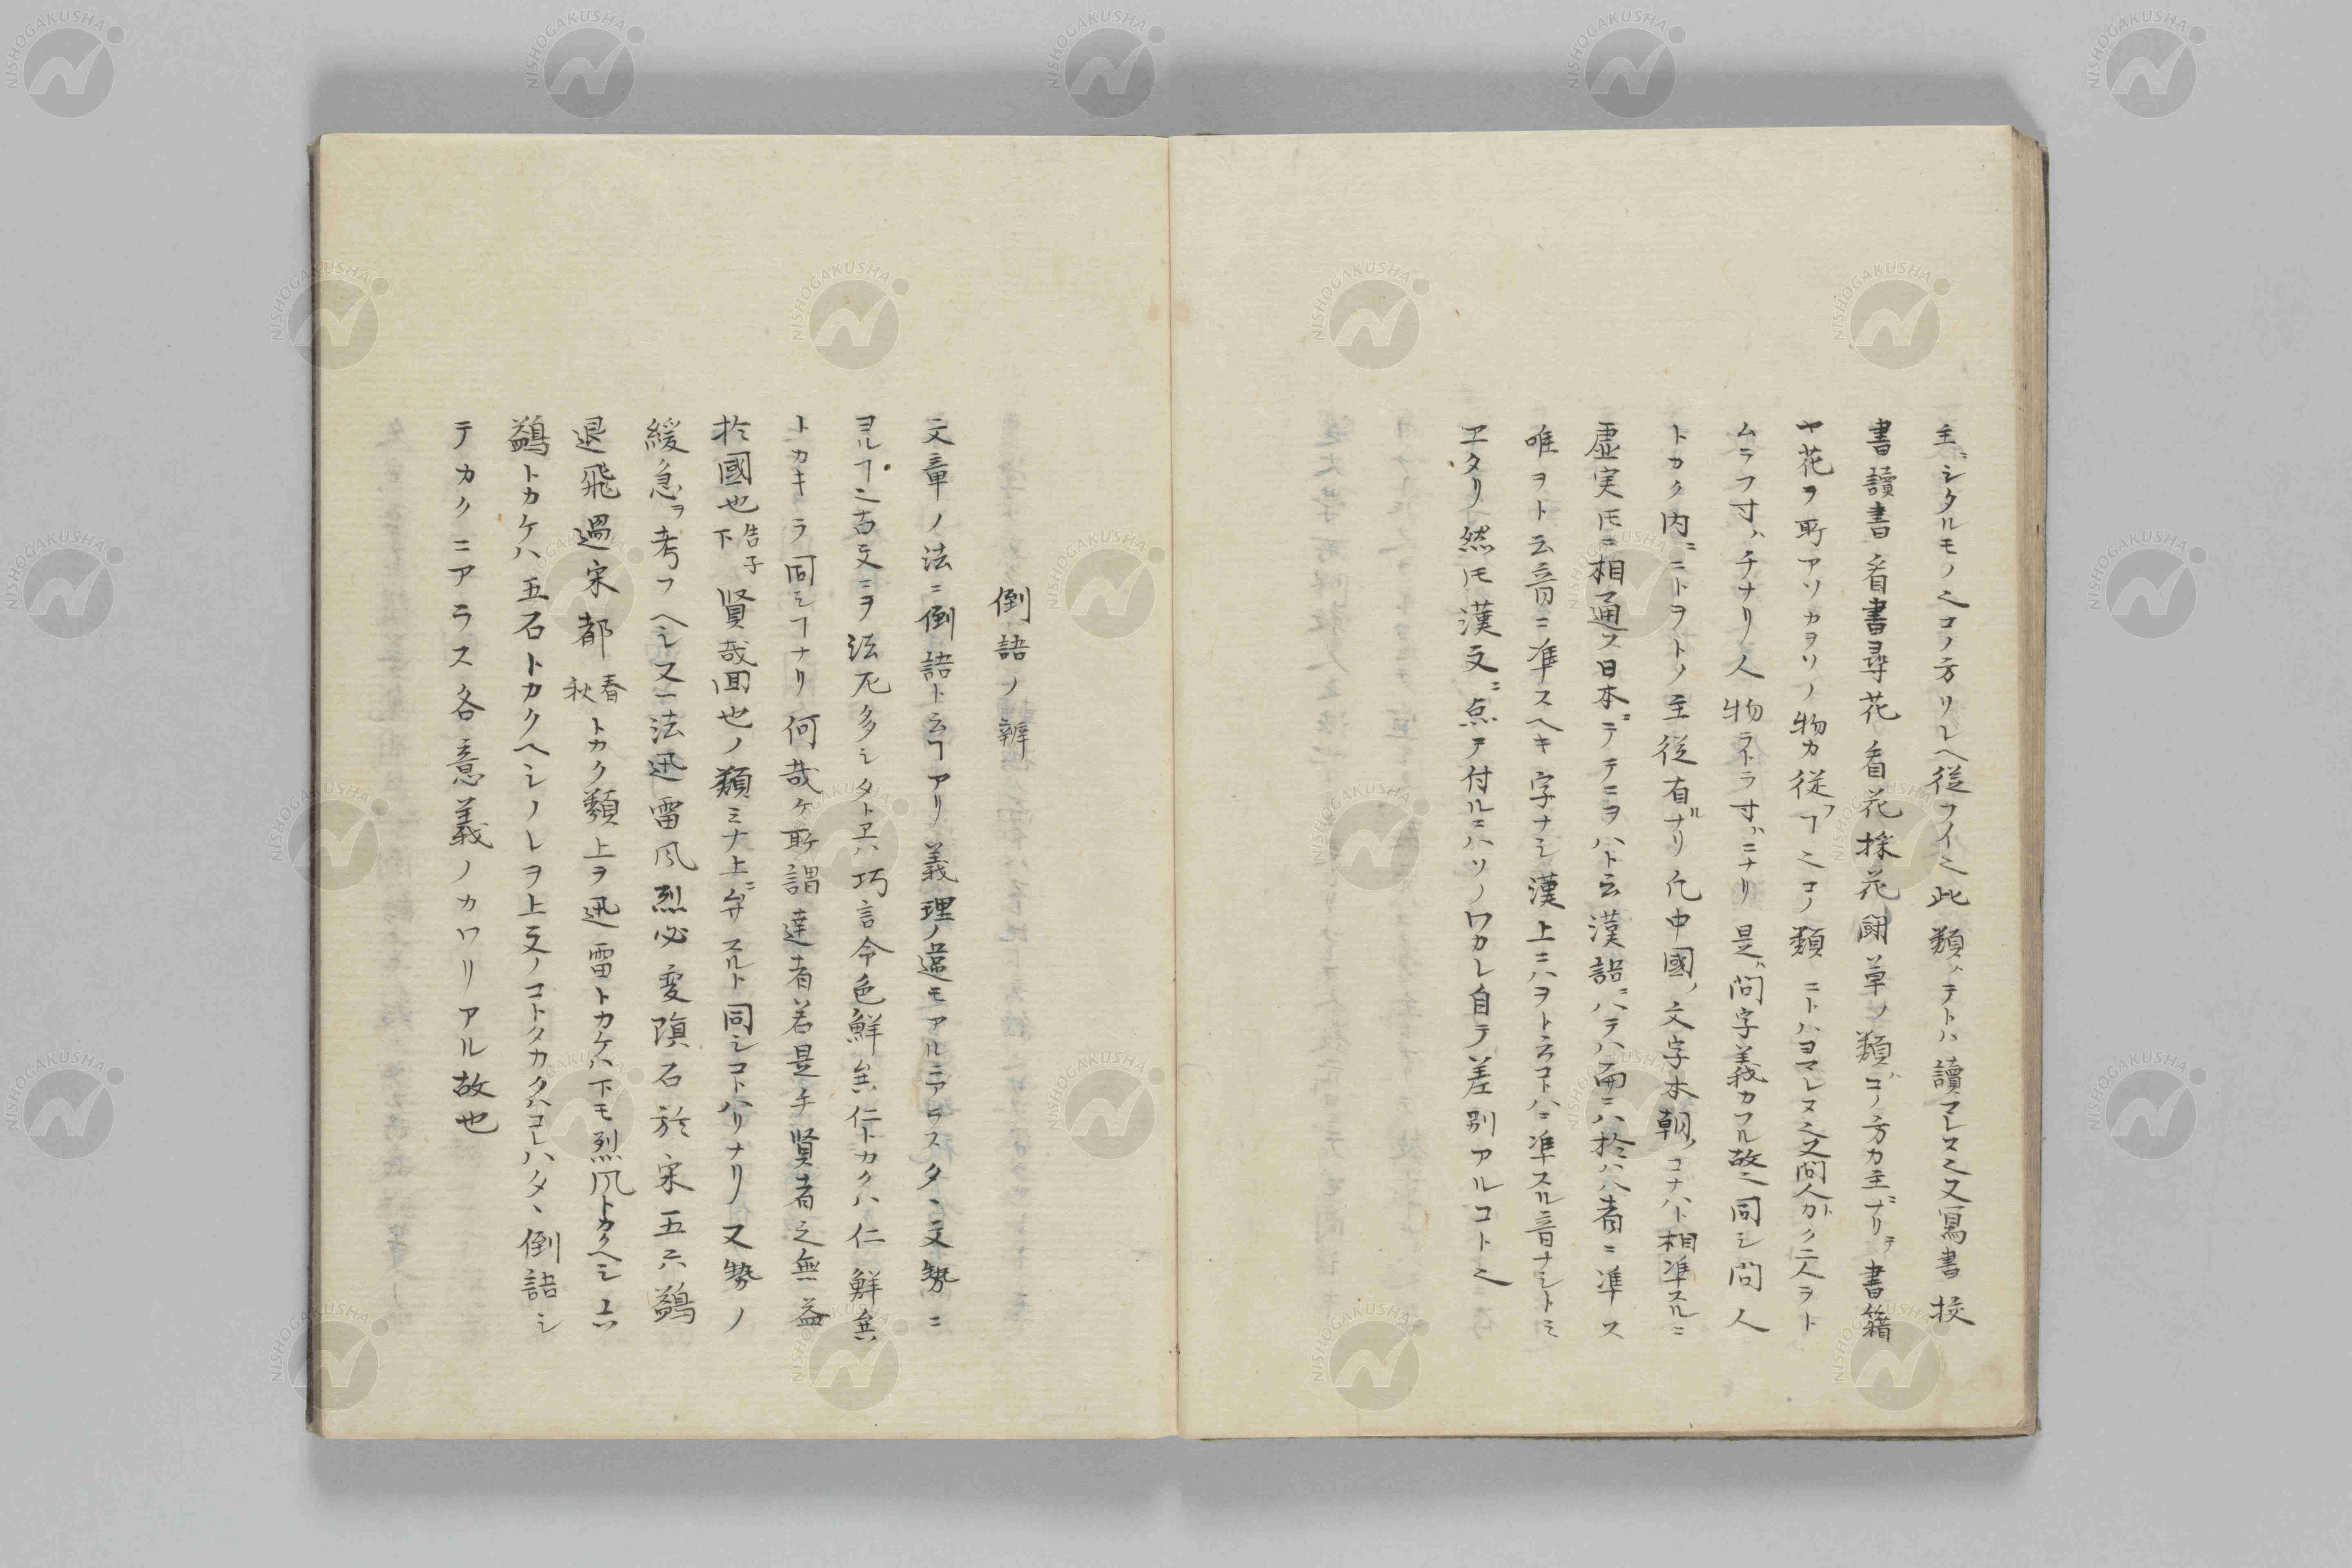 主ニシタルモノ之コノ方ソレヘ從フイ之此類ハテトハ讀マレヌ之又寫書校
書讀書看書尋花看花採花鬪草ノ類ハコノ方カ主ニナリテ書籍
ヤ花ヲ所アソカヲソノ物カ從フヿ之コノ類ニトハヨマレヌ之又問人トカク二人ヲト
ムラフ寸ハチナリ人物ヲトラ寸ハニナリ是ハ問字義カフル故之同シ問人
トカク内ニニトヲトノ主從有ルナリ凢中國ノ文字本朝ノコナハト相準スルニ
虚実𪜈ニ相通ス日本ニテテニヲハト云漢語ニハテハ而ニハ於ハハ者ニ準ス
唯ヲト云音ニ準スヘキ字ナシ漢上ニハヲト云コトハニ準スル音ナシトミ
エタリ然𪜈漢文ニ点ヲ付ルニハソノワカレ自ラ差別アルコト之
倒語ノ辨
文章ノ法ニ倒語ト云ヿアリ義理ノ違モアルニアラスタヽ文勢ニ
ヨルヿ之古文ニヲ法尤多シタトヱハ巧言令色鮮矣仁トカクハ仁鮮矣
トカキラ同シヿナリ何哉ケ所謂達者若是乎賢者之無益
於國也告子下賢哉回也ノ類ミナ上ニ弁スルト同シコトハリナリ又勢ノ
緩急ヲ考フヘシ又一法迅雷風烈必変隕石於宋五六鷁
退飛過宋都春秋トカク類上ヲ迅雷トカケハ下モ烈風トカクヘシ上ハ
鷁トカケハ五石トカクヘシソレヲ上文ノコトクカクハコレハタヽ倒語シ
テカクニアラス各意義ノカワリアル故也